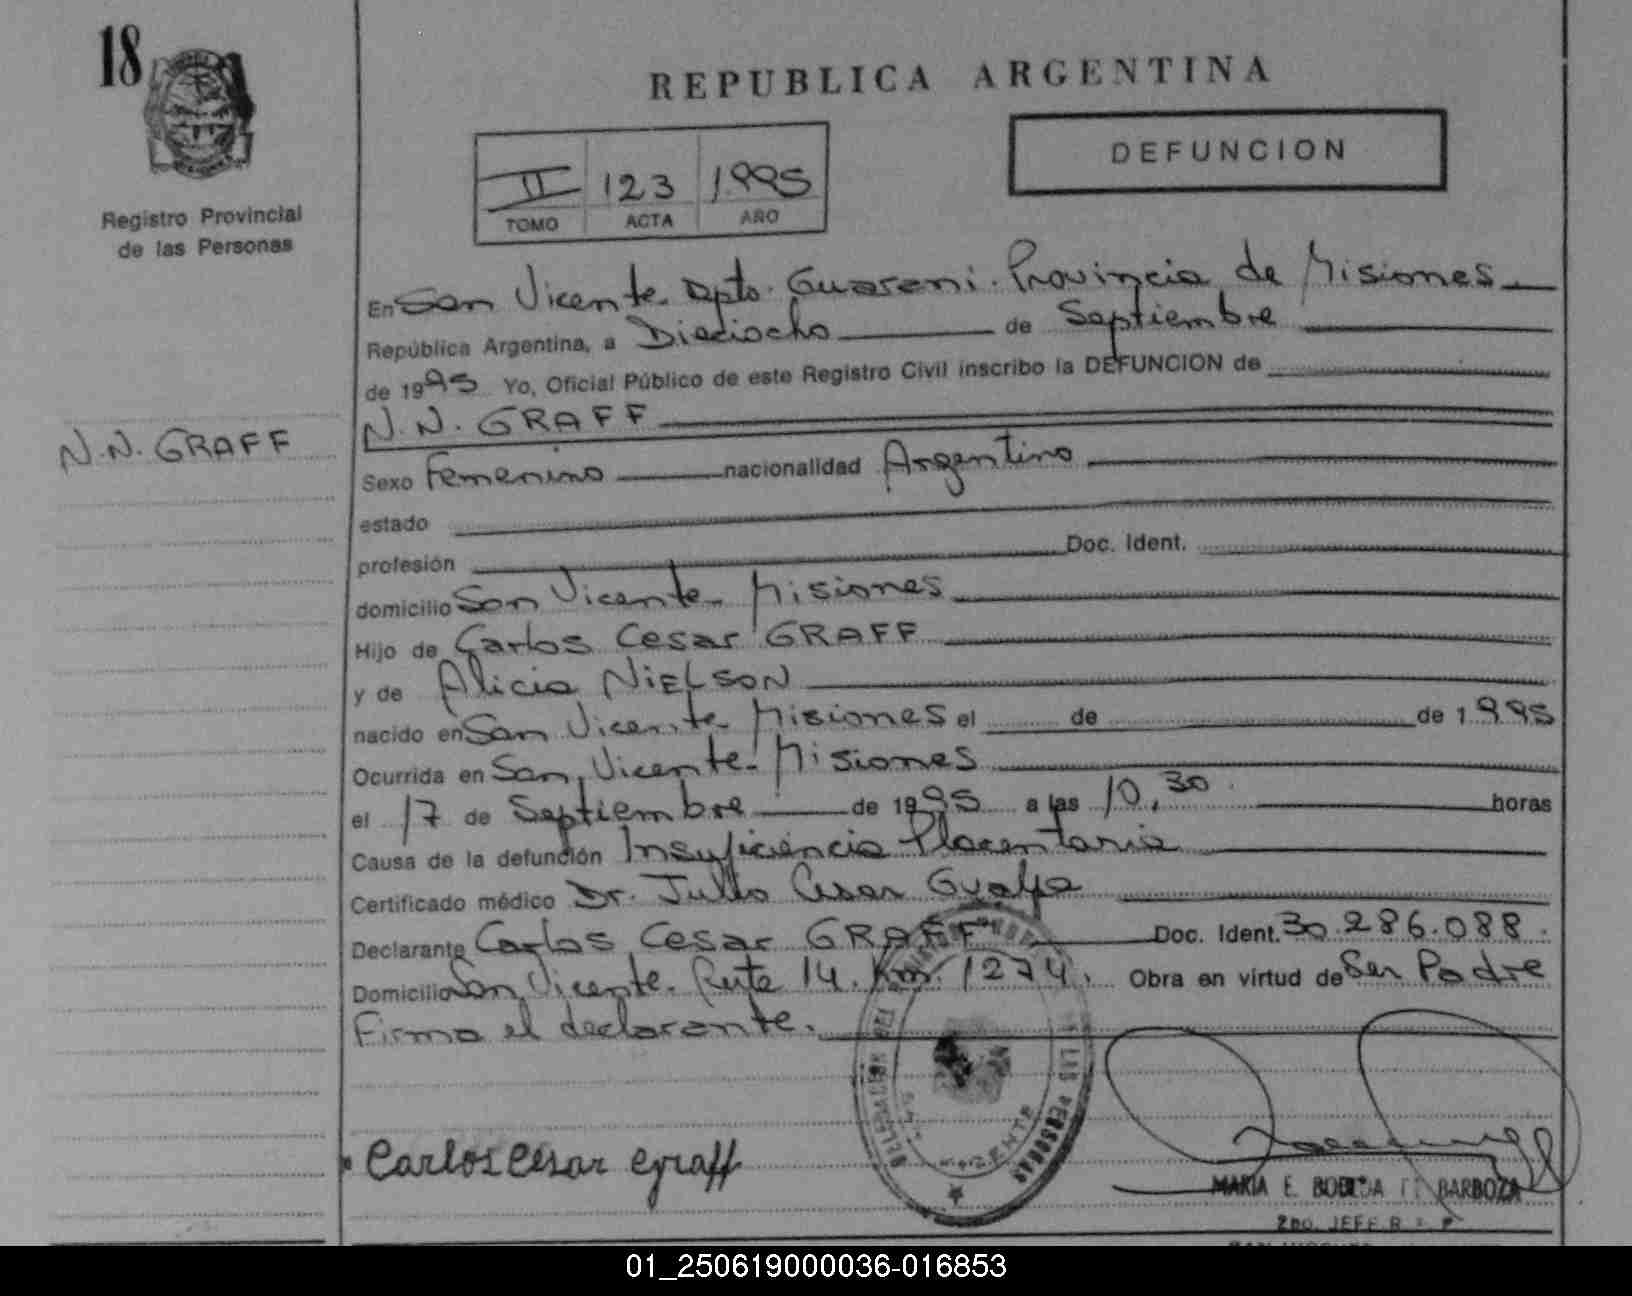 18
REPUBLICA ARGENTINA
DEFUNCION
II 123 1995
TOMO ACTA AÑO
Registro Provincial
de las Personas
En San Vicente. Dpto. Guarani. Provincia de Misiones
República Argentina, a Dieciocho de Septiembre
de 1995 Yo, Oficial Público de este Registro Civil inscribo la DEFUNCION de
N.N. GRAFF
N.N. GRAFF
Sexo Femenino nacionalidad Argentino
estado
profesión Doc. Ident.
domicilio San Vicente. Misiones
Hijo de Carlos Cesar GRAFF
y de Alicia NIELSON
nacido en San Vicente. Misiones el de de 1995
Ocurrida en San Vicente. Misiones
el 17 de Septiembre de 1995 a las 10,30 horas
Causa de la defunción Insuficiencia Placentaria
Certificado médico Dr. Julio Cesar
Declarante Carlos Cesar GRAFF Doc. Ident. 30.286.088.
Domicilio San Vicente. Ruta 14. km. 1274. Obra en virtud de Ser Padre
Firma el declarante.
Carlos Cesar Graff
MARIA E. BARBOZA
2do. JEFE R.
01_250619000036-016853